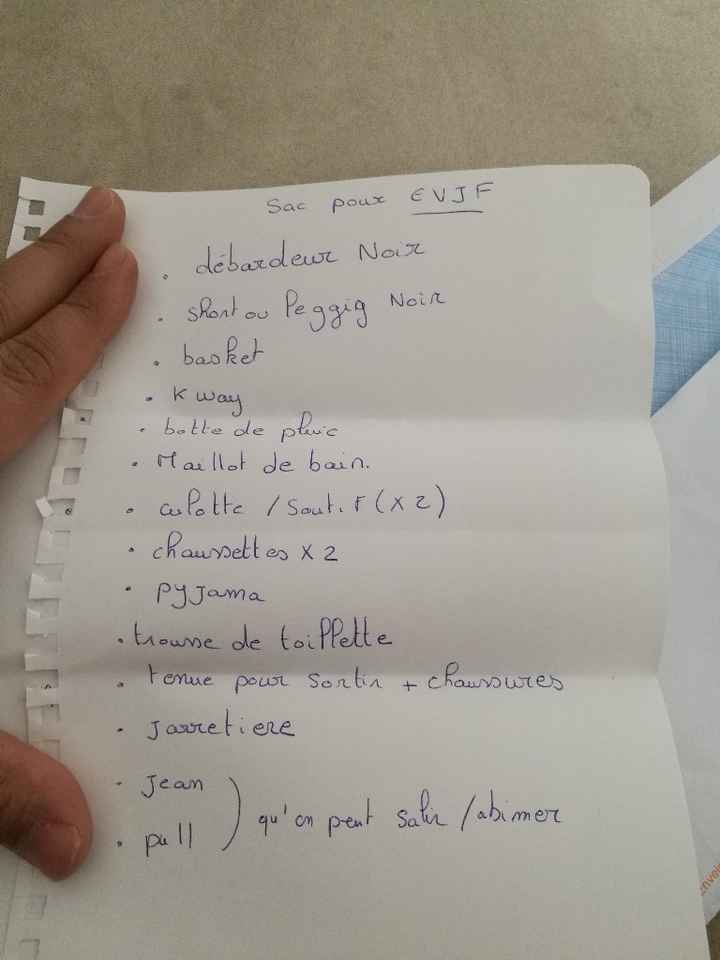 Sac pour EVJF
• débardeur Noir
• short ou leggig Noir
• basket
• K way
• botte de pluie
• Maillot de bain.
• culotte / Sout. F (X 2)
• chaussettes X 2
• pyjama
• trousse de toillette
• tenue pour sortir + chaussures
• jarretiere
• jean
qu'on peut salir / abimer
• pull